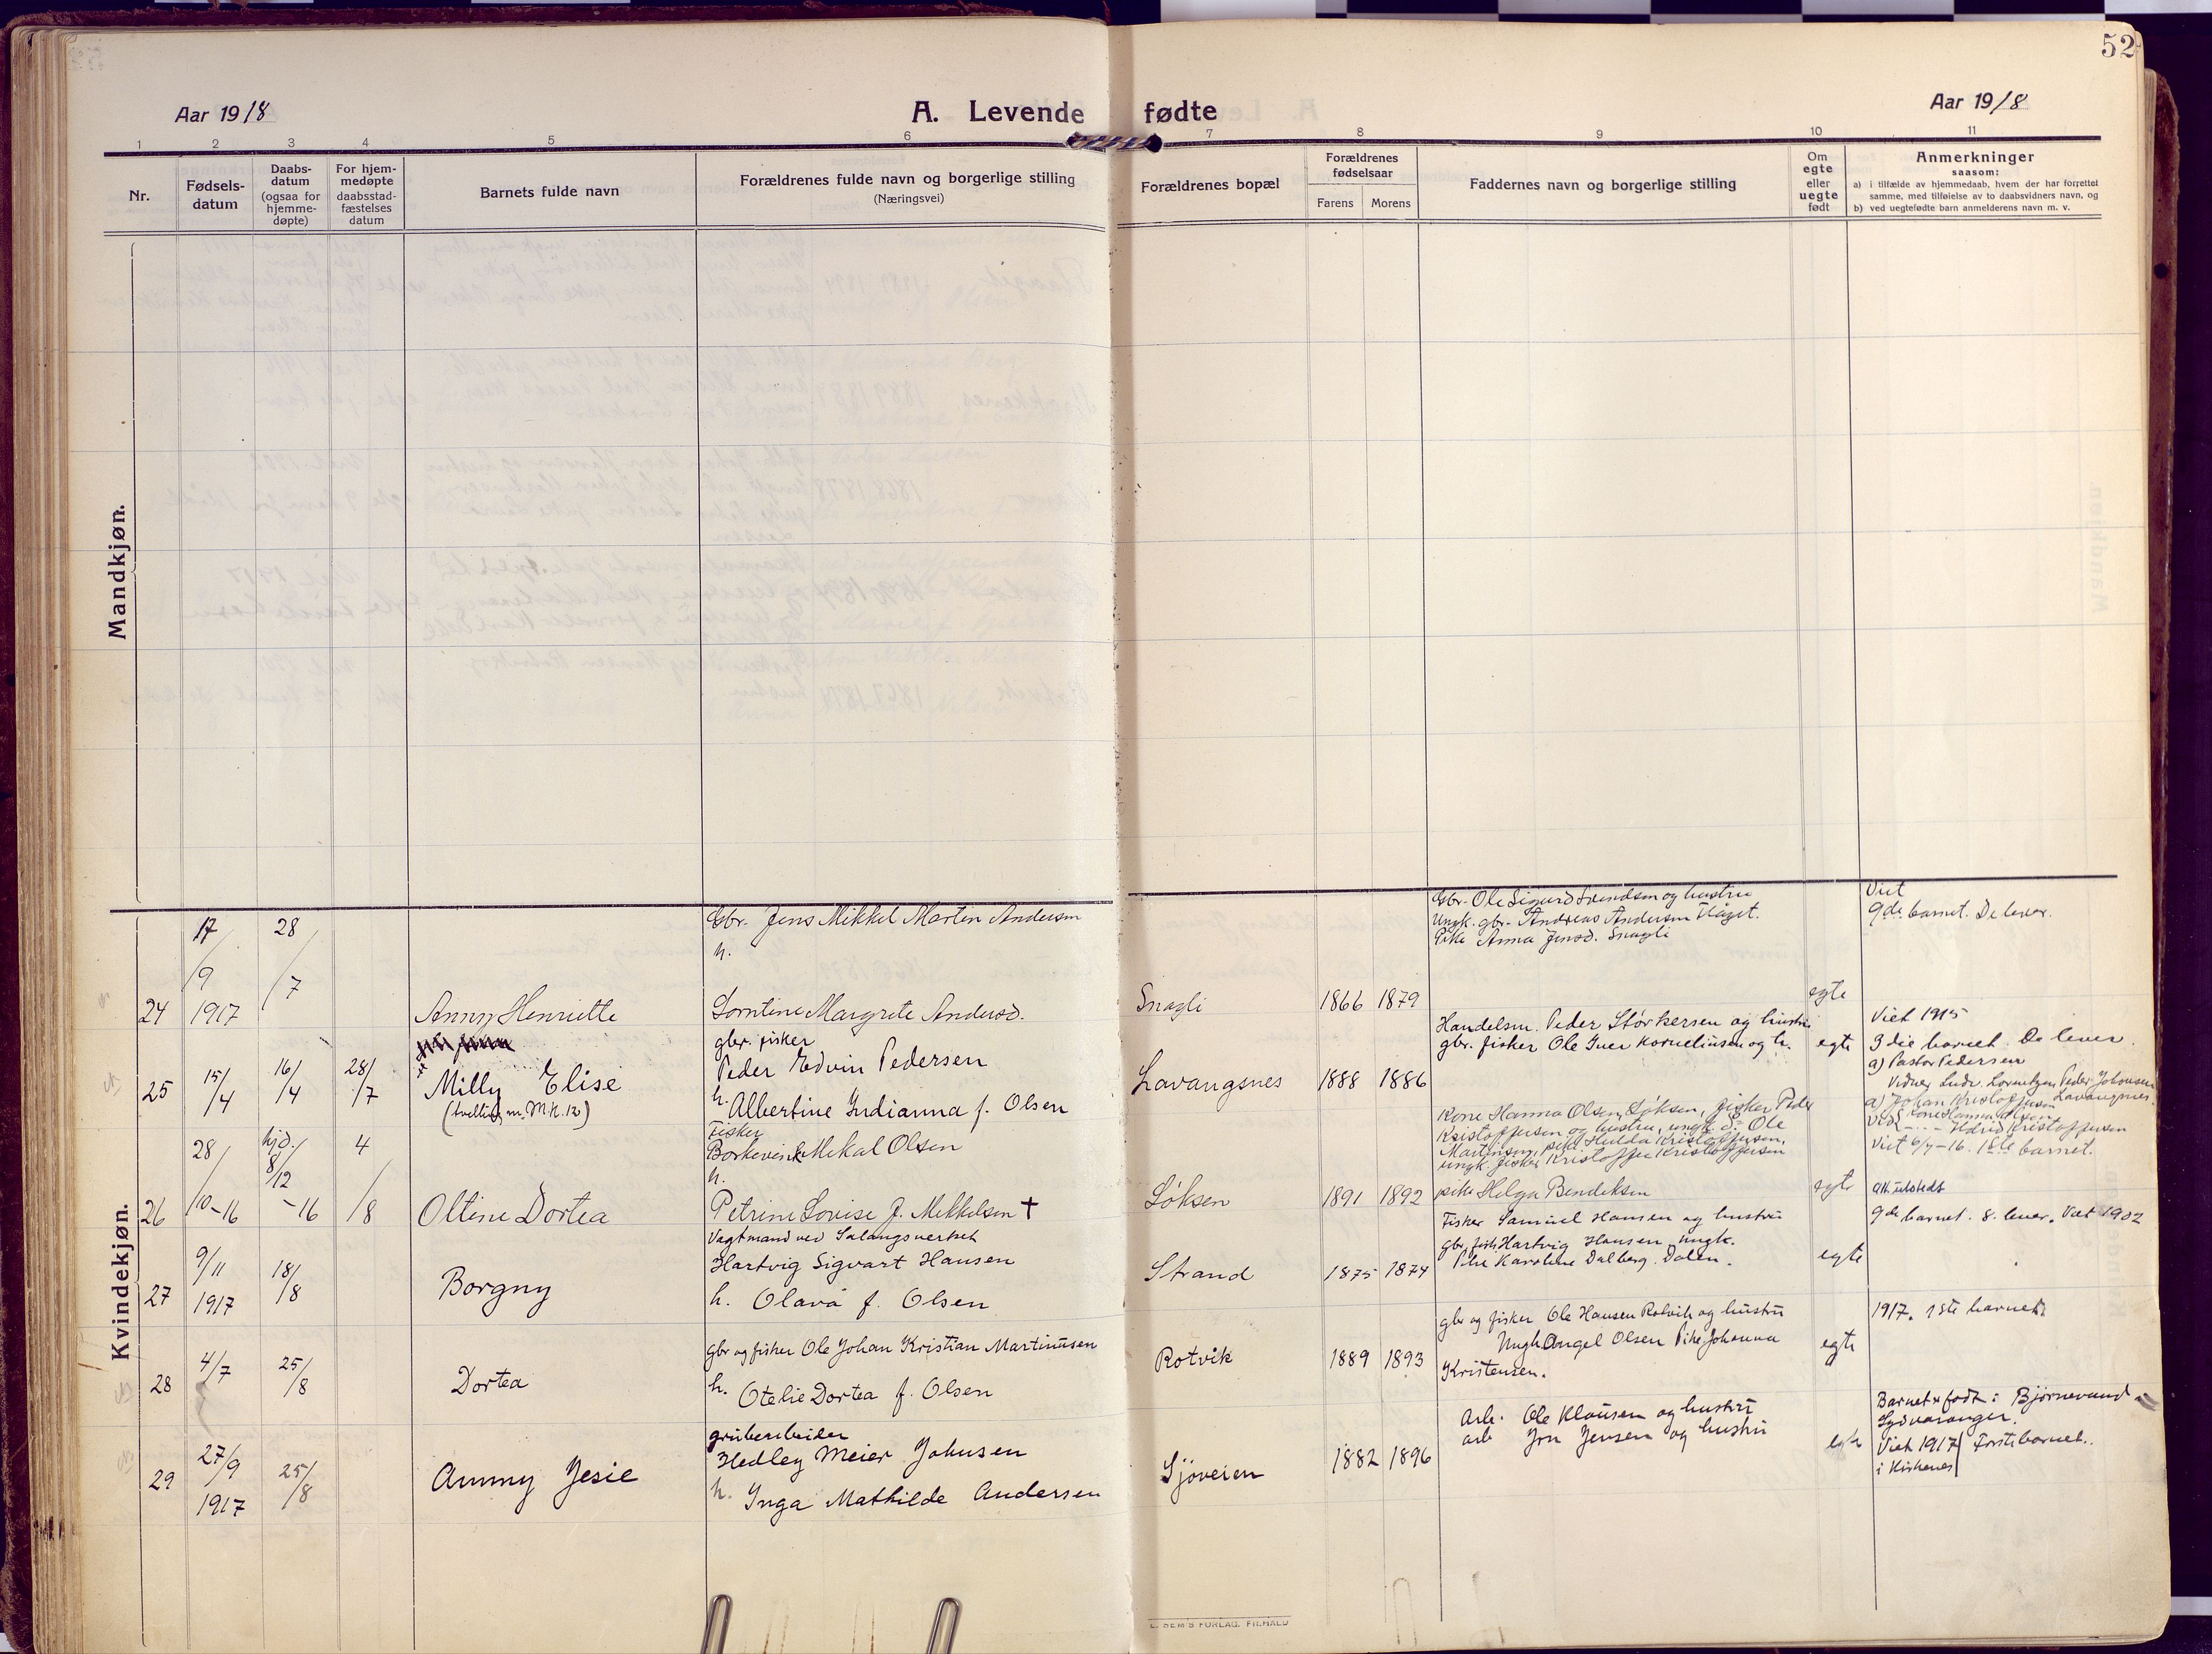 52
Aar 1918
A. Levende fødte
Aar 1918
1 2 3 4 5 6 7 8 9 10 11
Nr.
Fødsels-
datum
Daabs-
datum
(ogsaa for
hjemme-
døpte)
For hjem-
medøpte
daabsstad-
fæstelses
datum
Barnets fulde navn
Forældrenes fulde navn og borgerlige stilling
(Næringsvei)
Forældrenes bopæl
Forældrenes
fødselsaar
Farens Morens
Faddernes navn og borgerlige stilling
Om
egte
eller
uegte
født
Anmerkninger
saasom:
a) i tilfælde av hjemmedaab, hvem der har forrettet
samme, med tilføielse av to daabsvidners navn, og
b) ved uegtefødte barn anmelderens navn m. v.
Mandkjøn.
Kvindekjøn.
24
17/9
1917
28/7
Anny Henriette
Gbr. Jens Mikkel Martin Andersen
h.
Lorntine Margrete Andersd.
Snagli
1866 1879
Gbr. Ole Sigurd Svendsen og hustru
Ungk. gbr. Andreas Andersen Flåget.
Pike Anna Jensd. Snagli
egte
Viet
9de barnet. De lever.
25
15/4
16/4
28/7
Milly Elise
(tvilling m. M.K. 12)
gbr. fisker
Peder Edvin Pedersen
h. Albertine Indianna f. Olsen
Lavangsnes
1888 1886
Handelsm. Peder Størkersen og hustru
gbr. fisker Ole Iver Korneliussen og h.
egte
Viet 1915
3die barnet. De lever.
a) Pastor Pedersen
Vidner Ludv. Lorentzen Peder Johansen
Lavangsnes.
26
28/10-16
hjd.
8/12
-16
4/8
Oltine Dortea
Fisker
Borkevink Mekal Olsen
h.
Petrine Lovise f. Mikkelsen †
Løksen
1891 1892
Kone Hanna Olsen, Løksen, fisker Peder
Kristoffersen og hustru, ungk. do Ole
Martinsen, pike Hulda Kristoffersen,
ungk. fisker Kristoffer Kristoffersen
pike Helga Bendiksen
egte
a) Johan Kristoffersen
Vid. Kone Hanna Olsen
Hdrid Kristoffersen
Viet 6/7-16. 1ste barnet.
27
9/11
1917
18/8
Borgny
Vagtmand ved Salangsverket
Hartvig Sigvart Hansen
h. Olava f. Olsen
Strand
1875 1874
Fisker Samuel Hansen og hustru
gbr. fisk. Hartvig Hansen ungk.
Pike Karoline Dalberg. Dalen.
egte
9de barnet. 8. lever. Viet 1902
28
4/7
25/8
Dortea
gbr og fisker Ole Johan Kristian Martinusen
h. Otelie Dortea f. Olsen
Rotvik
1889 1893
gbr og fisker Ole Hansen Rotvik og hustru
Ungk Angel Olsen Pike Johanna
Kristensen.
egte
1917. 1ste barnet.
29
27/9
1917
25/8
Ammy Jesie
grubearbeider
Hedley Meier Johnsen
h. Inga Mathilde Andersen
Sjøveien
1882 1896
Arb. Ole Klausen og hustru
arb Jon Jensen og hustru
egte
Barnet er født i Bjørnevand
Sydvaranger.
Viet 1917 Første barnet.
i Kirkenes
E. SEM'S FORLAG. FR.HALD